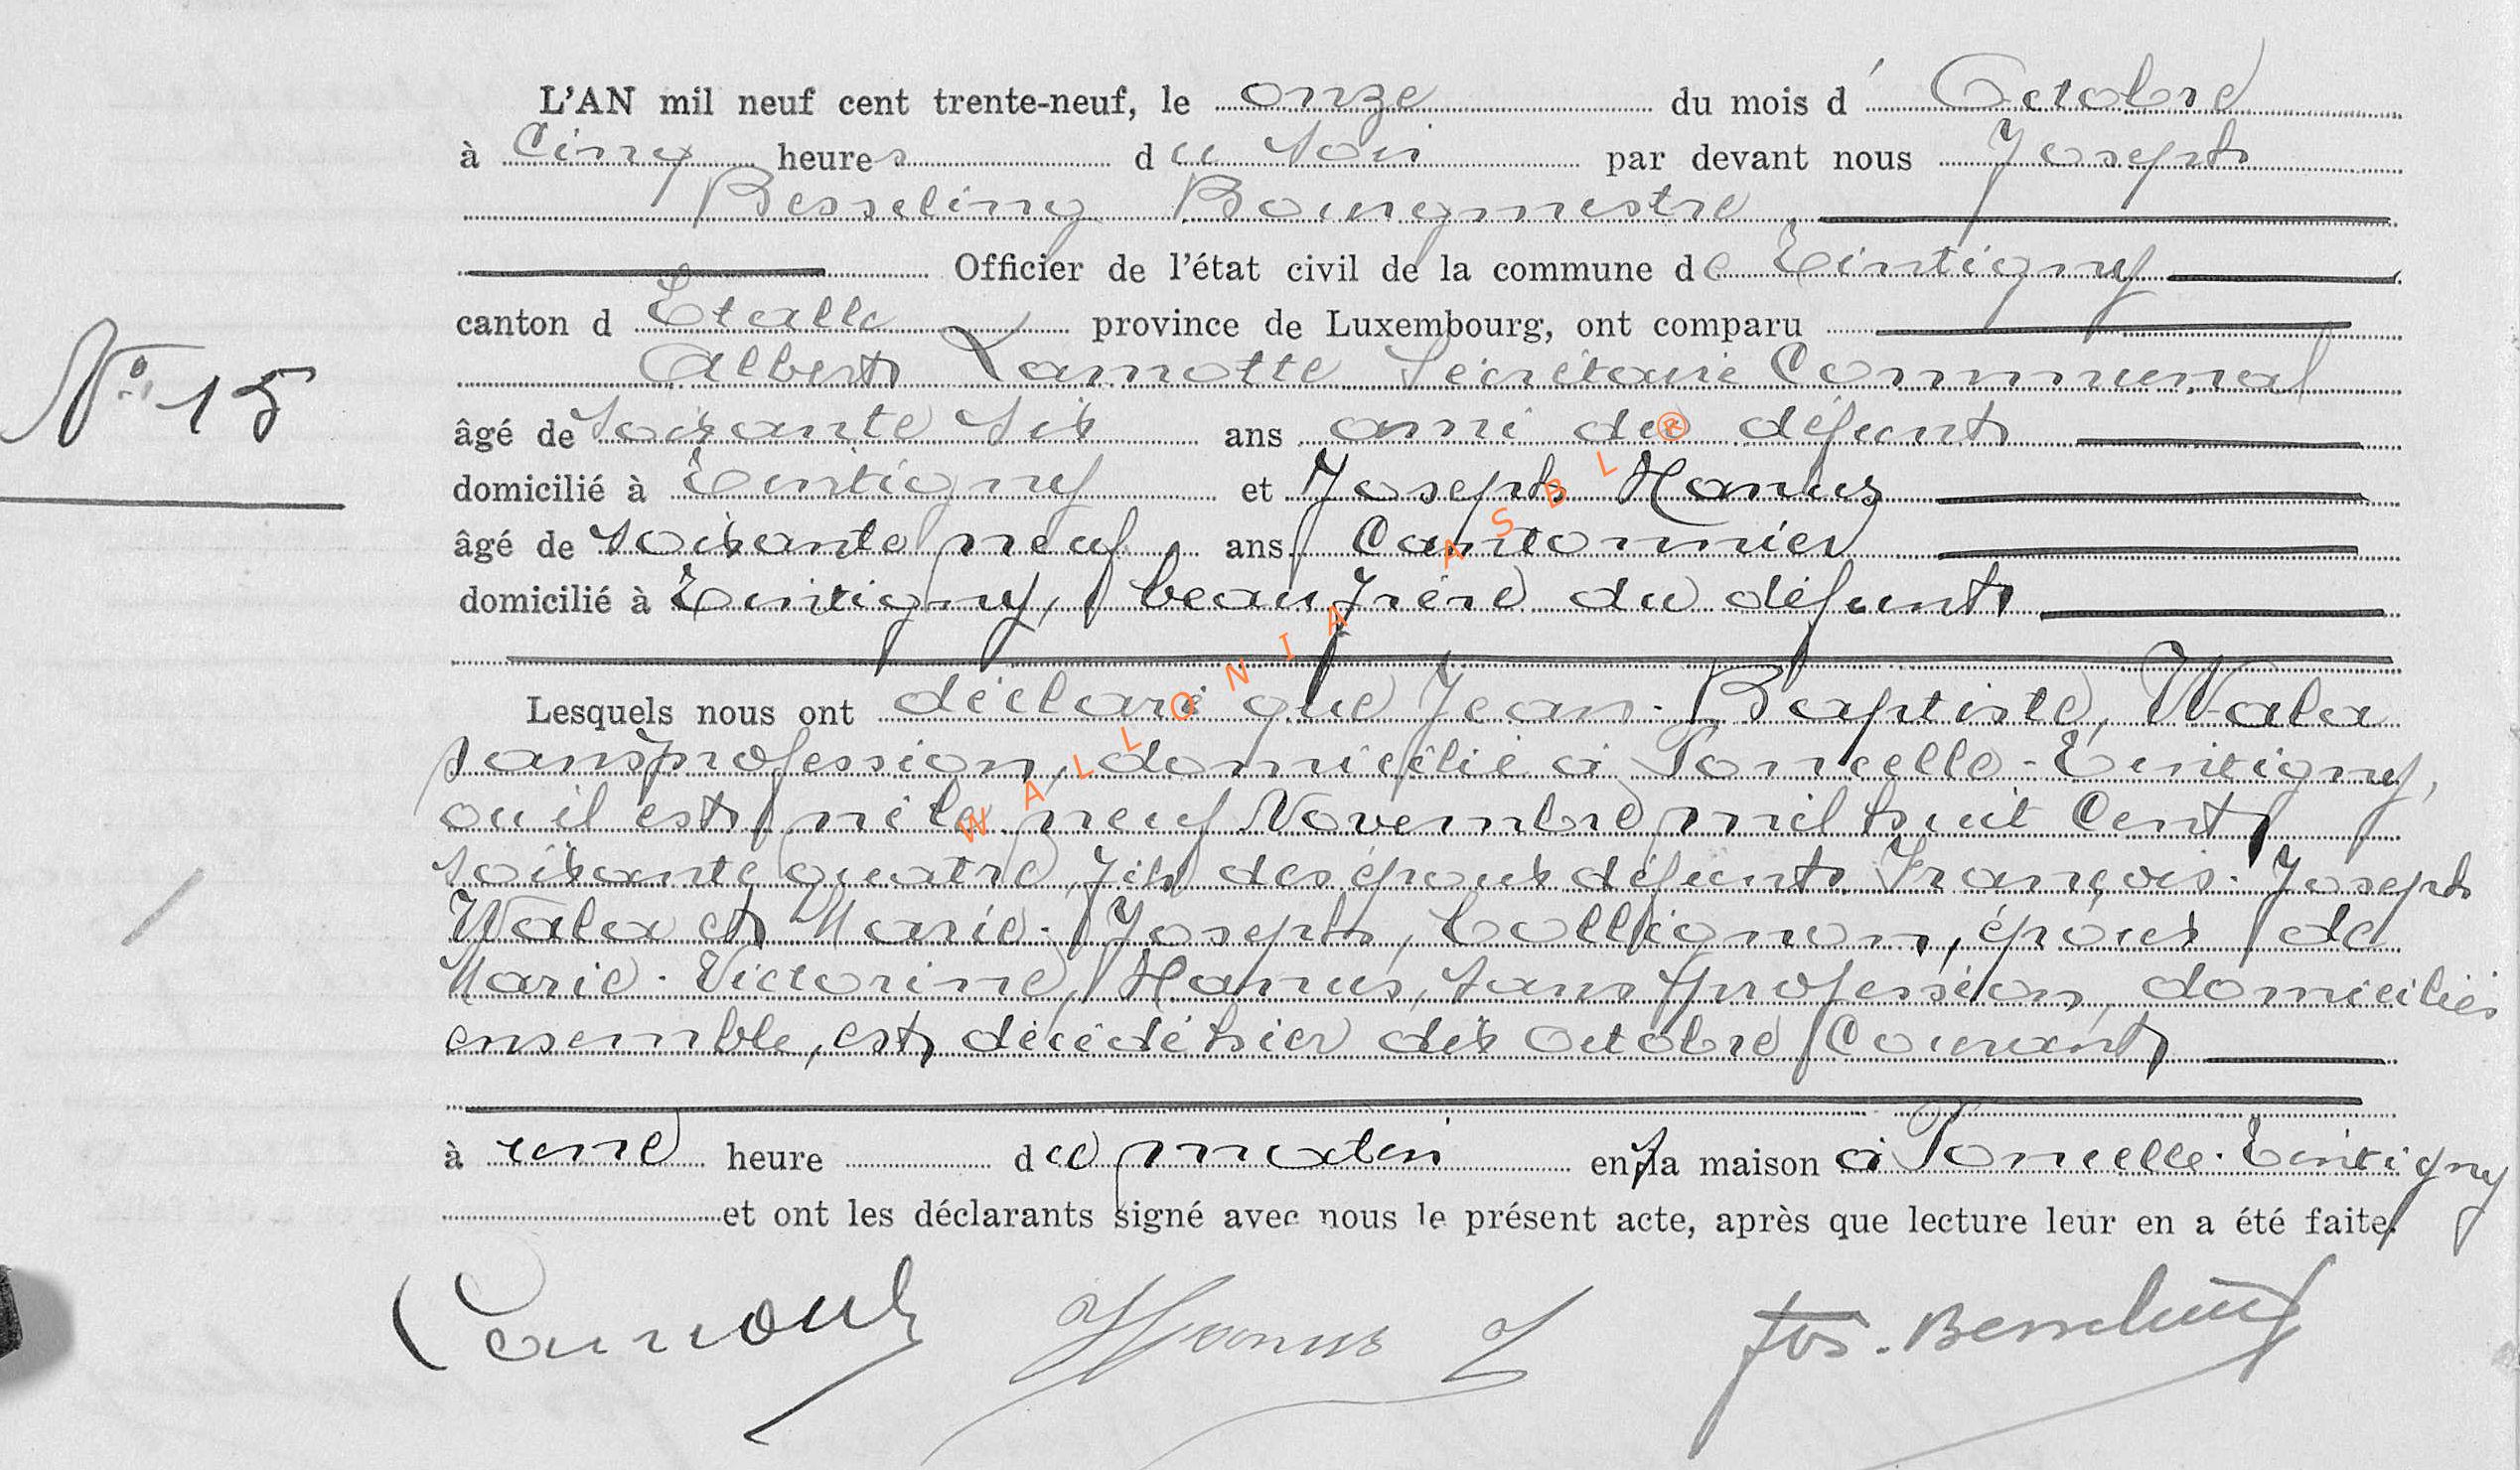 L'AN mil neuf cent trente-neuf, le onze du mois d'Octobre
à Cinq heures du soir par devant nous Joseph
Besseling Bourgmestre
Officier de l'état civil de la commune de Tintigny
canton d Etalle province de Luxembourg, ont comparu
Albert Lamotte Secrétaire Communal
N° 15
âgé de soixante six ans ami du défunt
domicilié à Tintigny et Joseph Hanus
âgé de soixante neuf ans Cantonnier
domicilié à Tintigny, beau frère du défunt
Lesquels nous ont déclaré que Jean-Baptiste, Walax
sans profession, domicilié à Poncelle-Tintigny,
ou il est né le neuf Novembre mil huit Cent
soixante quatre, fils des époux défunts François-Joseph
Walax et Marie-Joseph, Collignon, époux de
Marie-Victorine, Hanus, sans profession, domiciliés
ensemble, est décédé hier dix octobre Courant
à une heure du matin en sa maison à Poncelle-Tintigny
et ont les déclarants signé avec nous le présent acte, après que lecture leur en a été faite.
Lamotte Hanus J Jos. Besseling
WALLONIA ASBL ®